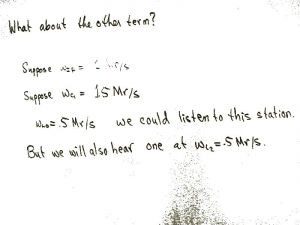 What about the other term?
Suppose ω_IF = 1 Mr/s
Suppose ω_c1 = 15 Mr/s
ω_LO = .5 Mr/s we could listen to this station.
But we will also hear one at ω_c2 = .5 Mr/s.